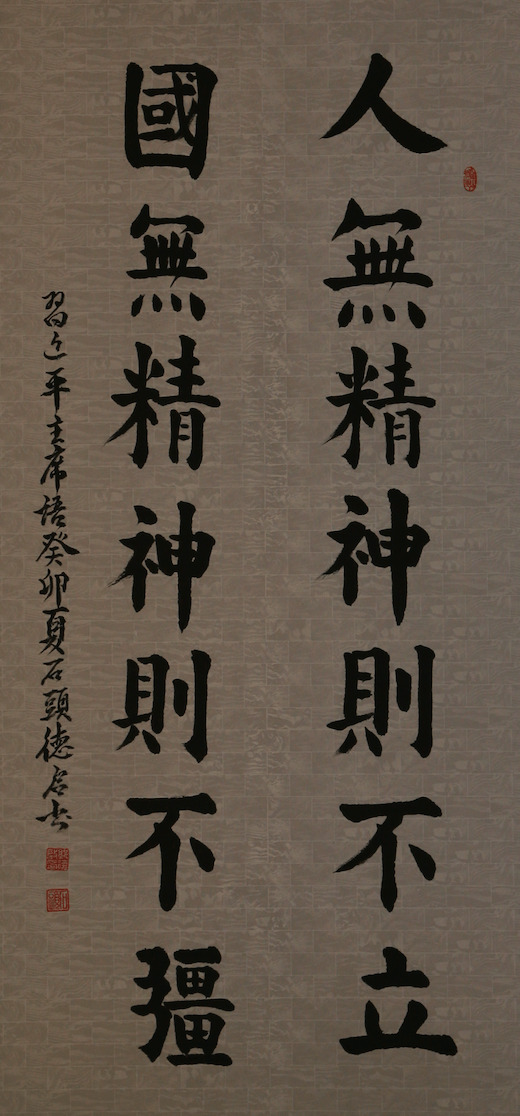 人無精神則不立
國無精神則不彊
習近平主席語癸卯夏石頭德启书